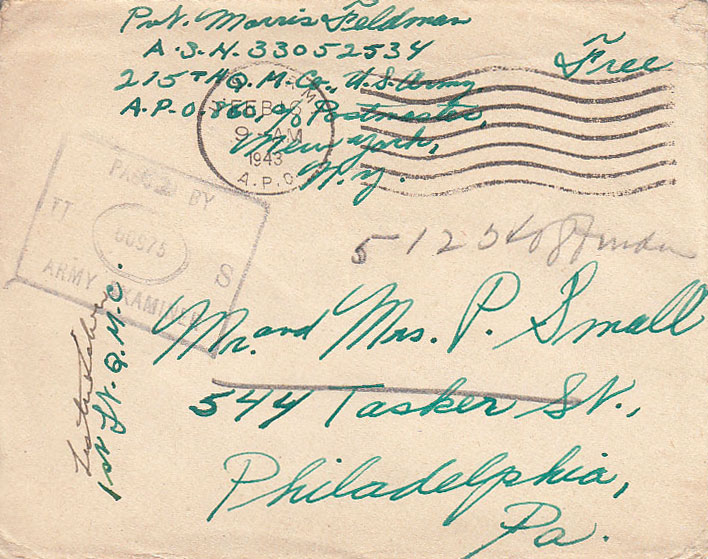 Pvt. Morris Feldman
A.S.N. 33052534
Free
215TH Q.M. Co., U.S. Army,
A.P.O. 860, c/o Postmaster,
New York,
N.Y.
FEB
9 AM
1943
A.P.O.
PASSED BY
ARMY EXAMINER
S
Mr. and Mrs. P. Small
544 Tasker St.,
Philadelphia,
Pa.
1st Lt. Q.M.C.